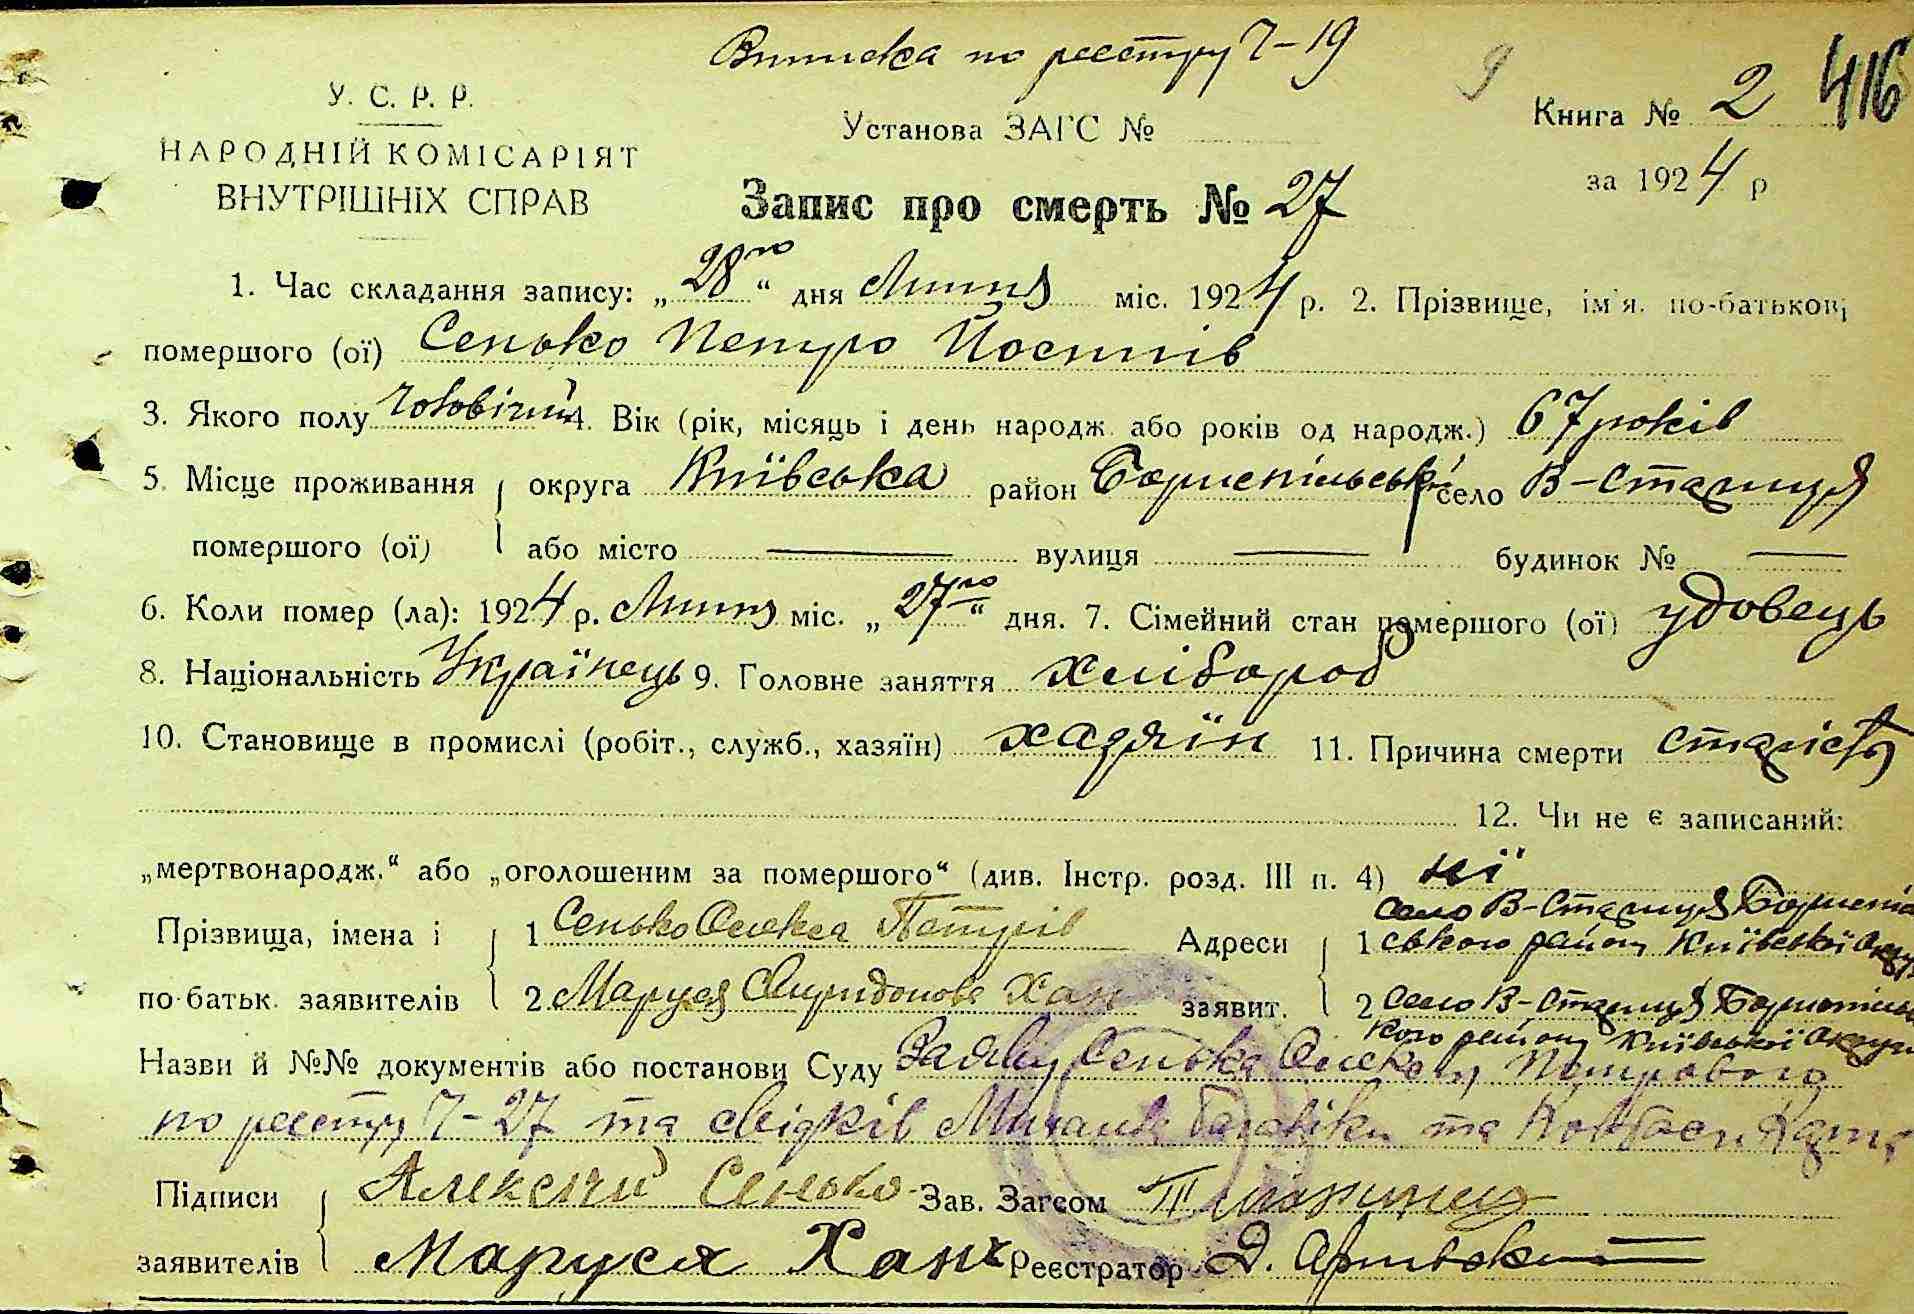 Виписка по реєстру Ч-19
У. С. Р. Р.
НАРОДНІЙ КОМІСАРІЯТ
ВНУТРІШНІХ СПРАВ
Установа ЗАГС №
Книга № 2 416
за 1924 р
Запис про смерть № 27
1. Час складання запису: „28го“ дня Липня міс. 1924 р. 2. Прізвище, ім'я, по-батькові
помершого (ої) Сенько Петро Йосипів
3. Якого полу Чоловічий 4. Вік (рік, місяць і день народж. або років од народж.) 67 років
5. Місце проживання округа Київська район Бориспільський село В-Стариця
помершого (ої) або місто — вулиця — будинок № —
6. Коли помер (ла): 1924 р. Липня міс. „27го“ дня. 7. Сімейний стан помершого (ої) удовець
8. Національність Українець 9. Головне заняття хлібороб
10. Становище в промислі (робіт., служб., хазяїн) хазяїн 11. Причина смерти старість
12. Чи не є записаний:
„мертвонародж.“ або „оголошеним за помершого“ (див. Інстр. розд. III п. 4) ні
Прізвища, імена і 1 Сенько Олекса Петрів Адреси 1 село В-Стариця Бориспільського району Київської Округи
по-батьк. заявителів 2 Маруся Спиридонова Хан заявит. 2 Село В-Стариця Бориспільського району Київської Округи
Назви й №№ документів або постанови Суду Заяву Сенька Олекси Петрового
по реєстру Ч-27 та свідків та
Підписи Алексей Сенько Зав. Загсом
заявителів Маруся Хан Реєстратор Д.